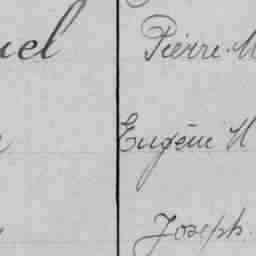 uel Pierre M
Eugène H
Joseph